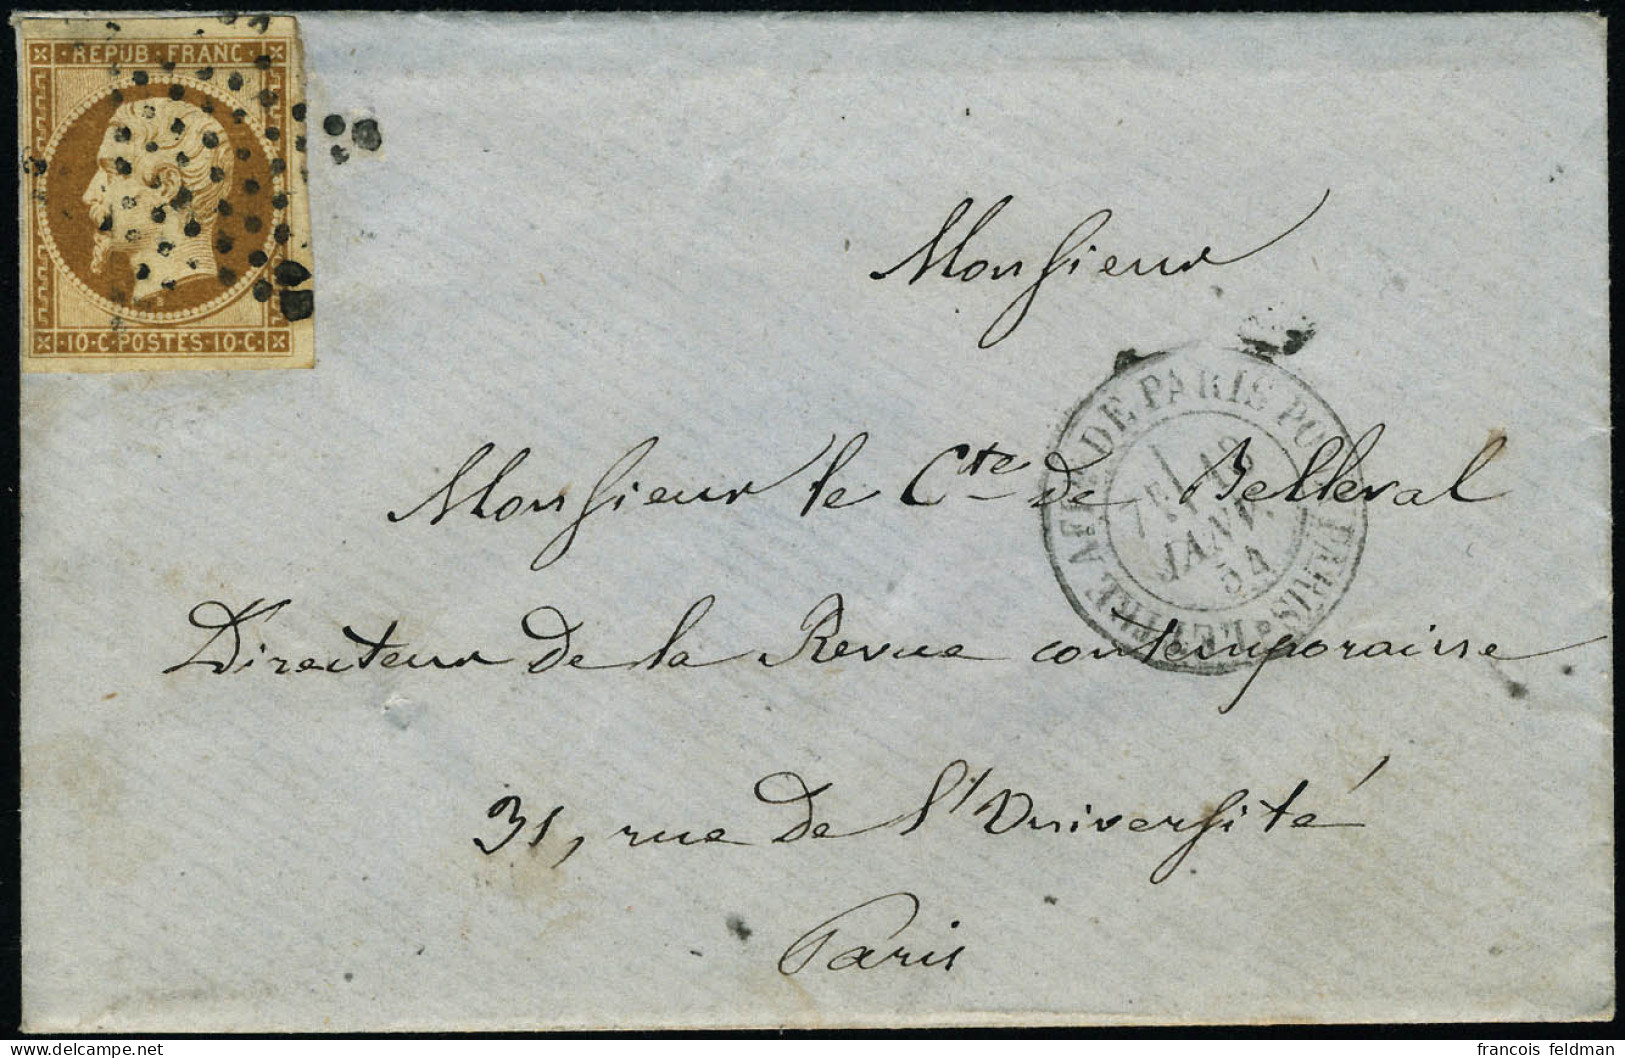 REPUB·FRANC·
·10·C·POSTES·10·C·
Monsieur
Monsieur le Cte de Belleval
Directeur de la Revue contemporaine
31, rue de l'Université
Paris
LETTRE AFFR. DE PARIS POUR PARIS
JANV.
54
francois feldman